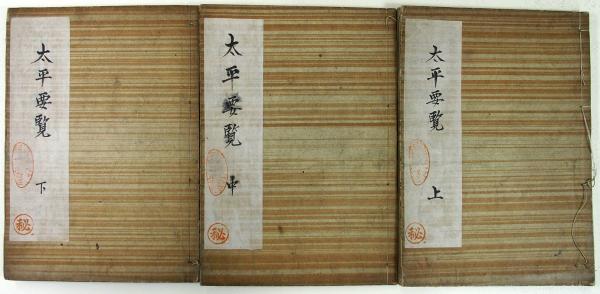 太平要覧 上
秘
太平要覧 中
秘
太平要覧 下
秘